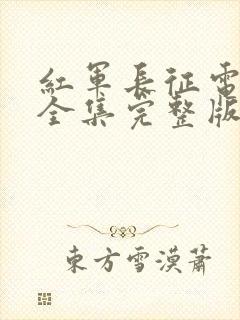 紅軍長征電
全集完整版
東方雪漠蕭